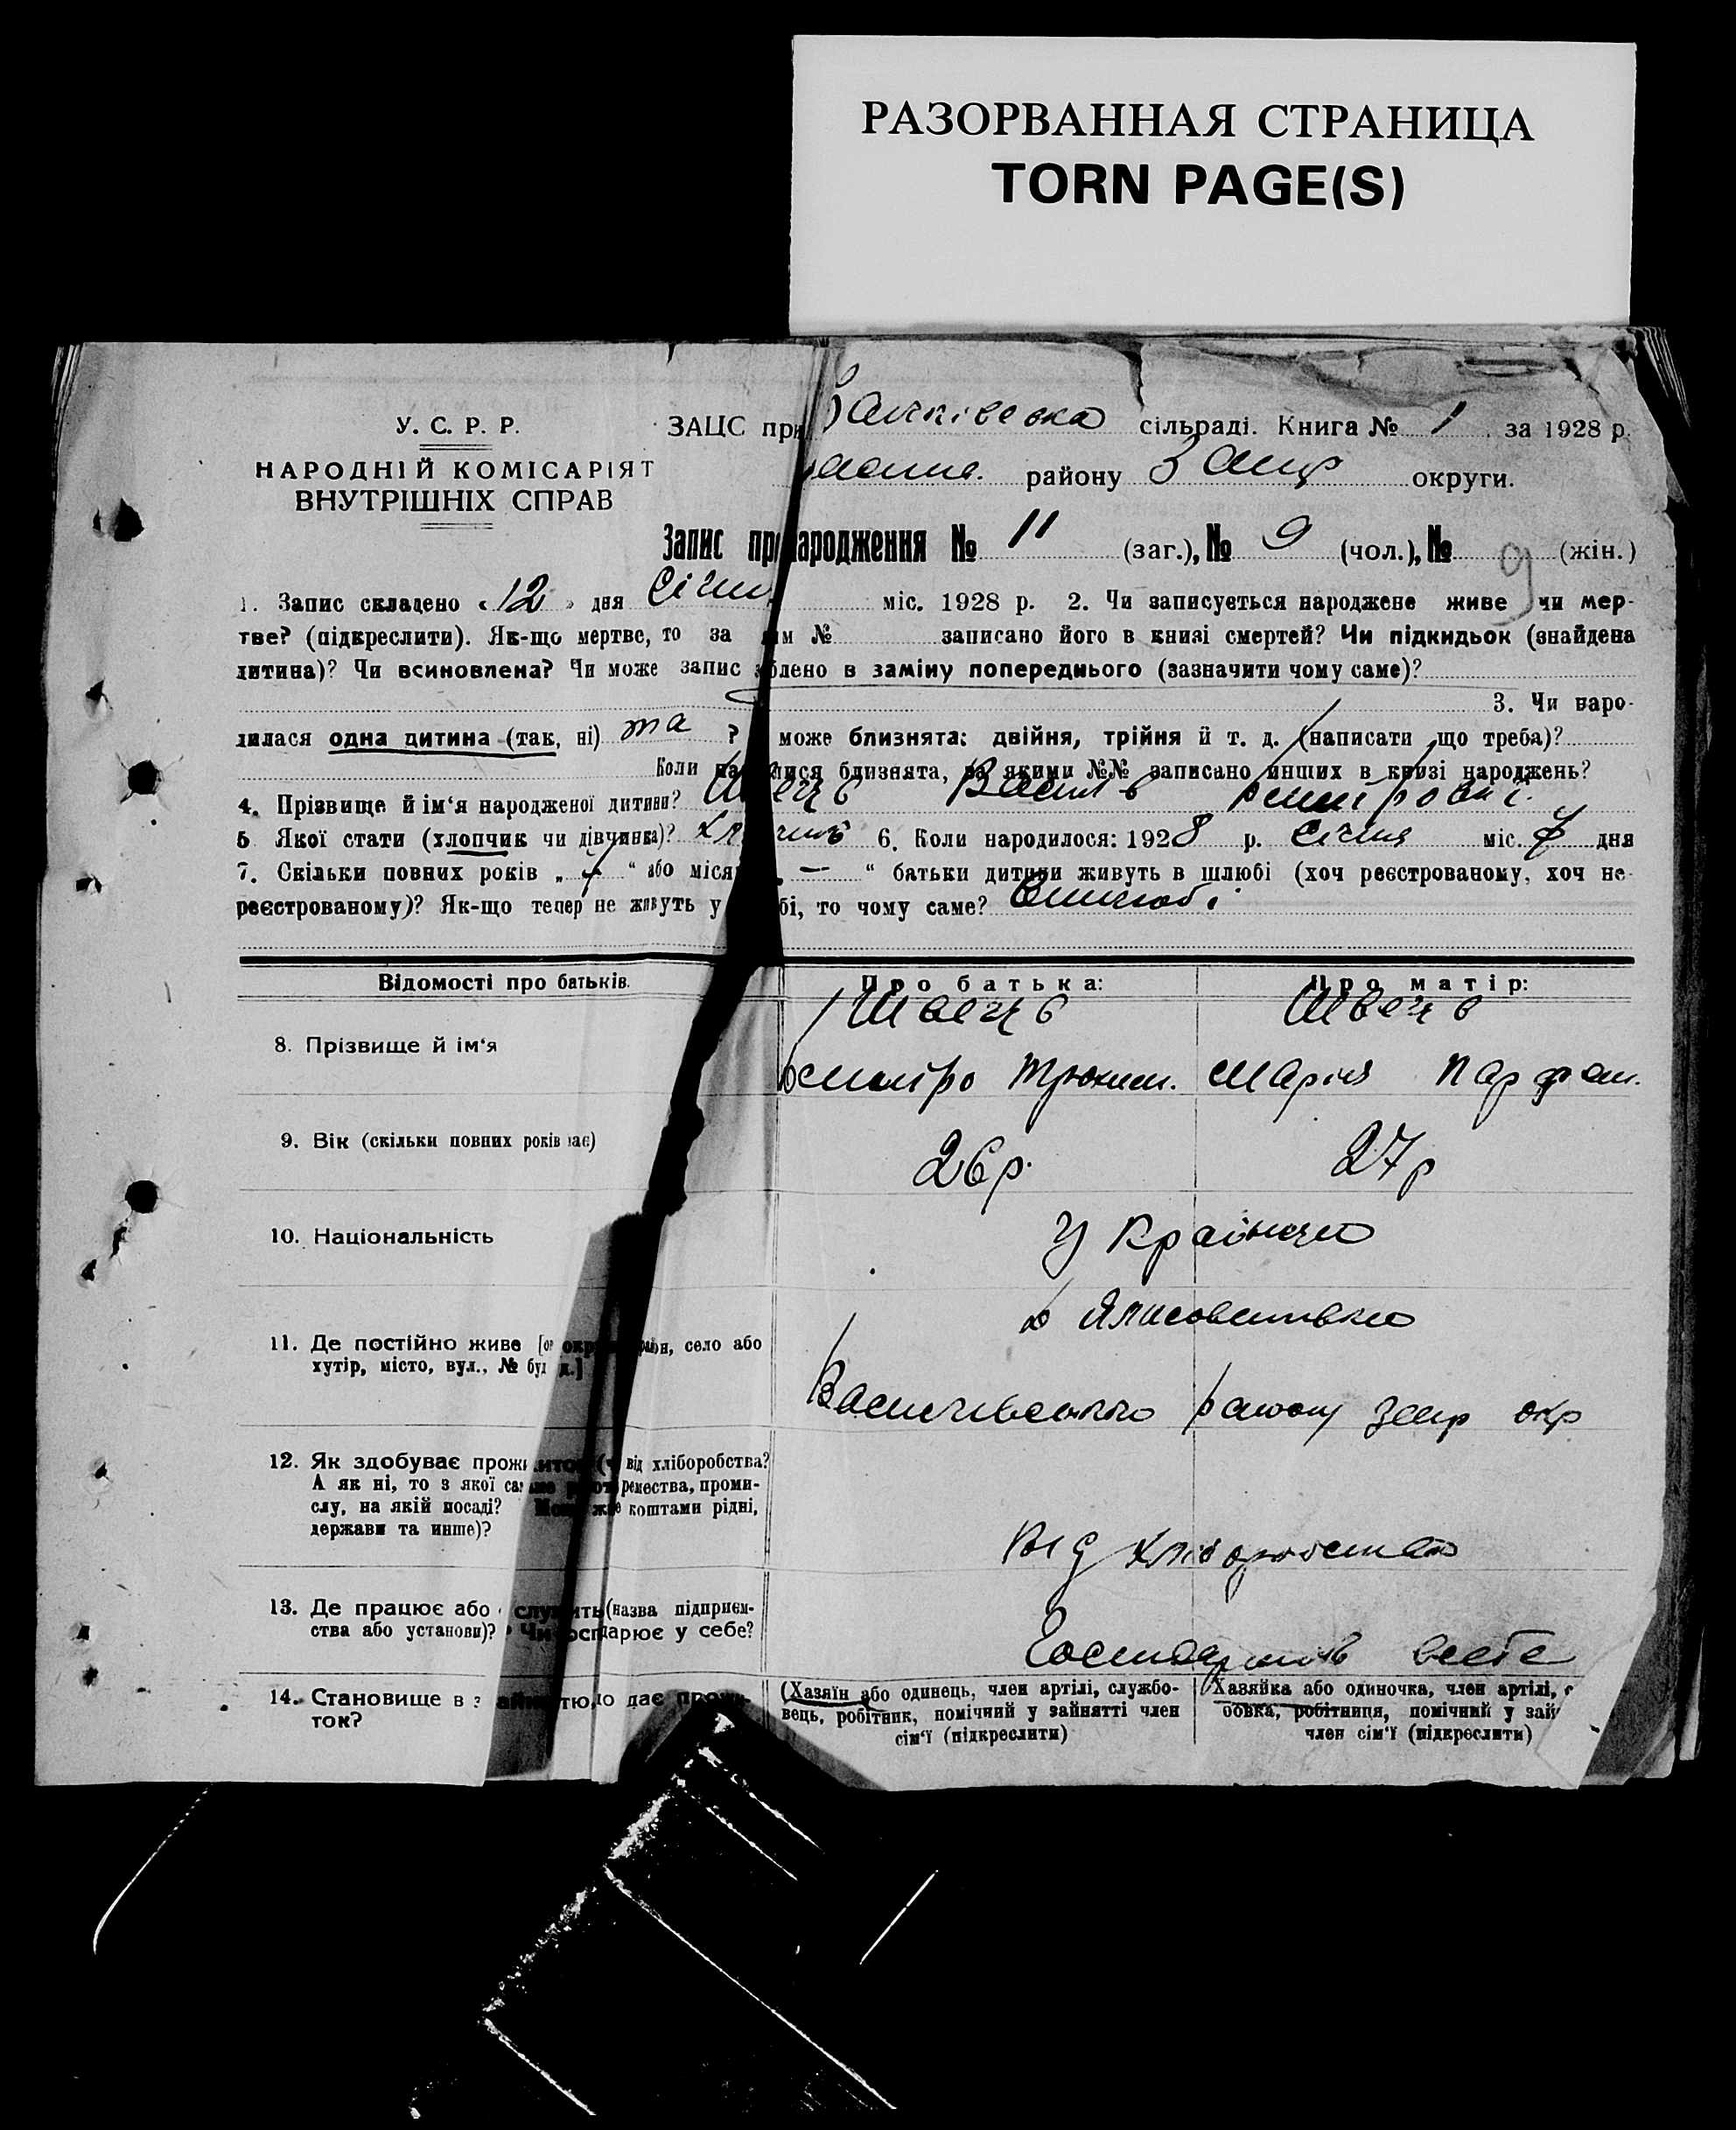 РАЗОРВАННАЯ СТРАНИЦА
TORN PAGE(S)
У. С. Р. Р.
НАРОДНІЙ КОМІСАРІЯТ
ВНУТРІШНІХ СПРАВ
ЗАЦС при сільраді. Книга № 1 за 1928 р.
району Запр округи.
Запис про народження № 11 (заг.), № 9 (чол.), № (жін.) 9
1. Запис складено « 12 » дня Січня міс. 1928 р. 2. Чи записується народжене живе чи мер-
тве? (підкреслити). Як-що мертве, то за № записано його в книзі смертей? Чи підкидьок (знайдена
дитина)? Чи всиновлена? Чи може запис зроблено в заміну попереднього (зазначити чому саме)?
3. Чи наро-
дилася одна дитина (так, ні) та ? може близнята: двійня, трійня й т. д. (написати що треба)?
Коли народилися близнята, за якими №№ записано інших в книзі народжень?
4. Прізвище й ім‘я народженої дитини? Швець Василь
5 Якої стати (хлопчик чи дівчинка)? 6. Коли народилося: 1928 р. Січня міс. дня
7. Скільки повних років „ “ або місяців „ — “ батьки дитини живуть в шлюбі (хоч реєстрованому, хоч не-
реєстрованому)? Як-що тепер не живуть у шлюбі, то чому саме?
Відомості про батьків.
Про батька:
Про матір:
8. Прізвище й ім‘я
Швець
Швець
Дмитро Трохим. Марія Парфом.
9. Вік (скільки повних років має)
26 р. 27 р
10. Національність
Українци
11. Де постійно живе [округа, район, село або
хутір, місто, вул., № буд.]
Василівського району Запр окр
12. Як здобуває прожиток (чи від хліборобства?
А як ні, то з якої саме роботи, ремества, проми-
слу, на якій посаді? Може живе коштами рідні,
держави та инше)?
Від хліборобства
13. Де працює або служить (назва підприєм-
ства або установи)? Чи господарює у себе?
Господарюють всебе
14. Становище в занятті, що дає прожи-
ток?
(Хазяїн або одинець, член артілі, службо-
вець, робітник, помічний у зайнятті член
сім'ї (підкреслити)
(Хазяйка або одиночка, член артілі,
бовка, робітниця, помічний у зай
член сім'ї (підкреслити)